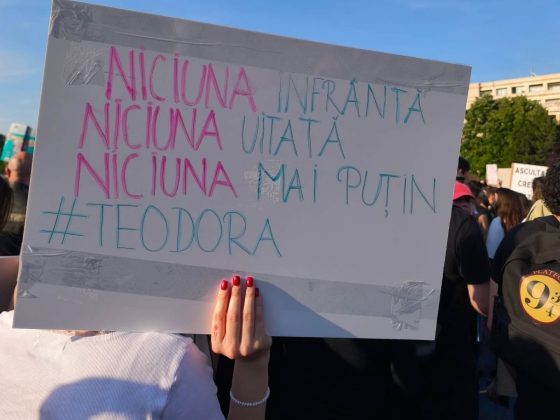 NICIUNA ÎNFRÂNTĂ
NICIUNA UITATĂ
NICIUNA MAI PUȚIN
#TEODORA
ASCULTA
CRE
PLATFO
9 ¾